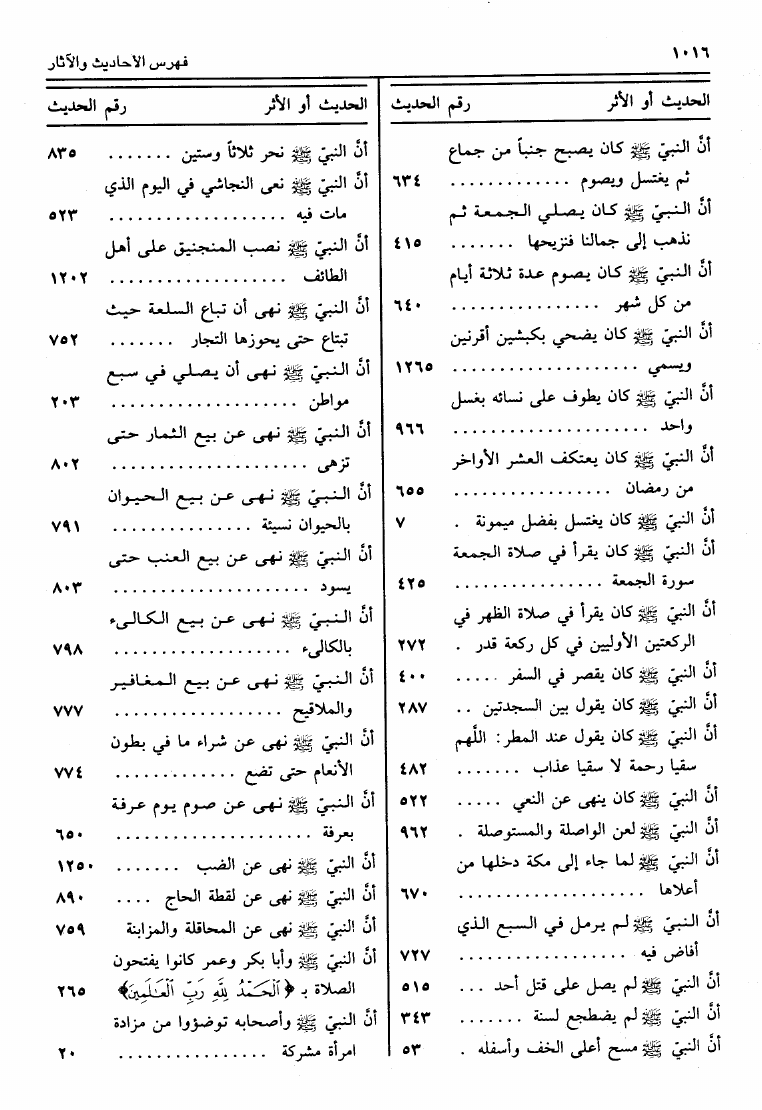 ١٠١٦
فهرس الأحاديث والآثار
الحديث أو الأثر رقم الحديث
أنَّ النبيّ ﷺ كان يصبح جنباً من جماع
ثم يغتسل ويصوم . . . . . . . . . . . . . ٦٣٤
أنَّ النبيّ ﷺ كان يصلي الجمعة ثم
نذهب إلى جمالنا فنزيحها . . . . . . . ٤١٥
أنَّ النبيّ ﷺ كان يصوم عدة ثلاثة أيام
من كل شهر . . . . . . . . . . . . . . . . ٦٤٠
أنَّ النبيّ ﷺ كان يضحي بكبشين أقرنين
ويسمي . . . . . . . . . . . . . . . . . . . . ١٢٦٥
أنَّ النبيّ ﷺ كان يطوف على نسائه بغسل
واحد . . . . . . . . . . . . . . . . . . . . . ٩٦٦
أنَّ النبيّ ﷺ كان يعتكف العشر الأواخر
من رمضان . . . . . . . . . . . . . . . . . ٦٥٥
أنَّ النبيّ ﷺ كان يغتسل بفضل ميمونة . ٧
أنَّ النبيّ ﷺ كان يقرأ في صلاة الجمعة
سورة الجمعة . . . . . . . . . . . . . . . . ٤٢٥
أنَّ النبيّ ﷺ كان يقرأ في صلاة الظهر في
الركعتين الأوليين في كل ركعة قدر . ٢٧٢
أنَّ النبيّ ﷺ كان يقصر في السفر . . . . . ٤٠٠
أنَّ النبيّ ﷺ كان يقول بين السجدتين . . ٢٨٧
أنَّ النبيّ ﷺ كان يقول عند المطر: اللَّهم
سقيا رحمة لا سقيا عذاب . . . . . . . ٤٨٢
أنَّ النبيّ ﷺ كان ينهى عن النعي . . . . . ٥٢٢
أنَّ النبيّ ﷺ لعن الواصلة والمستوصلة . ٩٦٢
أنَّ النبيّ ﷺ لما جاء إلى مكة دخلها من
أعلاها . . . . . . . . . . . . . . . . . . . . ٦٧٠
أنَّ النبيّ ﷺ لم يرمل في السبع الذي
أفاض فيه . . . . . . . . . . . . . . . . . . ٧٢٧
أنَّ النبيّ ﷺ لم يصل على قتل أحد . . . ٥١٥
أنَّ النبيّ ﷺ لم يضطجع لسنة . . . . . . . ٣٤٣
أنَّ النبيّ ﷺ مسح أعلى الخف وأسفله . ٥٣
الحديث أو الأثر رقم الحديث
أنَّ النبيّ ﷺ نحر ثلاثاً وستين . . . . . . . ٨٣٥
أنَّ النبيّ ﷺ نعى النجاشي في اليوم الذي
مات فيه . . . . . . . . . . . . . . . . . . . ٥٢٣
أنَّ النبيّ ﷺ نصب المنجنيق على أهل
الطائف . . . . . . . . . . . . . . . . . . . ١٢٠٢
أنَّ النبيّ ﷺ نهى أن تباع السلعة حيث
تبتاع حتى يحوزها التجار . . . . . . . ٧٥٢
أنَّ النبيّ ﷺ نهى أن يصلي في سبع
مواطن . . . . . . . . . . . . . . . . . . . . ٢٠٣
أنَّ النبيّ ﷺ نهى عن بيع الثمار حتى
تزهى . . . . . . . . . . . . . . . . . . . . . ٨٠٢
أنَّ النبيّ ﷺ نهى عن بيع الحيوان
بالحيوان نسيئة . . . . . . . . . . . . . . . ٧٩١
أنَّ النبيّ ﷺ نهى عن بيع العنب حتى
يسود . . . . . . . . . . . . . . . . . . . . . ٨٠٣
أنَّ النبيّ ﷺ نهى عن بيع الكالىء
بالكالىء . . . . . . . . . . . . . . . . . . . ٧٩٨
أنَّ النبيّ ﷺ نهى عن بيع المغافير
والملاقيح . . . . . . . . . . . . . . . . . . ٧٧٧
أنَّ النبيّ ﷺ نهى عن شراء ما في بطون
الأنعام حتى تضع . . . . . . . . . . . . . ٧٧٤
أنَّ النبيّ ﷺ نهى عن صوم يوم عرفة
بعرفة . . . . . . . . . . . . . . . . . . . . . ٦٥٠
أنَّ النبيّ ﷺ نهى عن الضب . . . . . . . ١٢٥٠
أنَّ النبيّ ﷺ نهى عن لقطة الحاج . . . . ٨٩٠
أنَّ النبيّ ﷺ نهى عن المحاقلة والمزابنة ٧٥٩
أنَّ النبيّ ﷺ وأبا بكر وعمر كانوا يفتحون
الصلاة بـ ﴿اَلْحَمْدُ لِلَّهِ رَبِّ اَلْعَـٰلَمِينَ﴾ ٢٦٥
أنَّ النبيّ ﷺ وأصحابه توضؤوا من مزادة
امرأة مشركة . . . . . . . . . . . . . . . . ٢٠